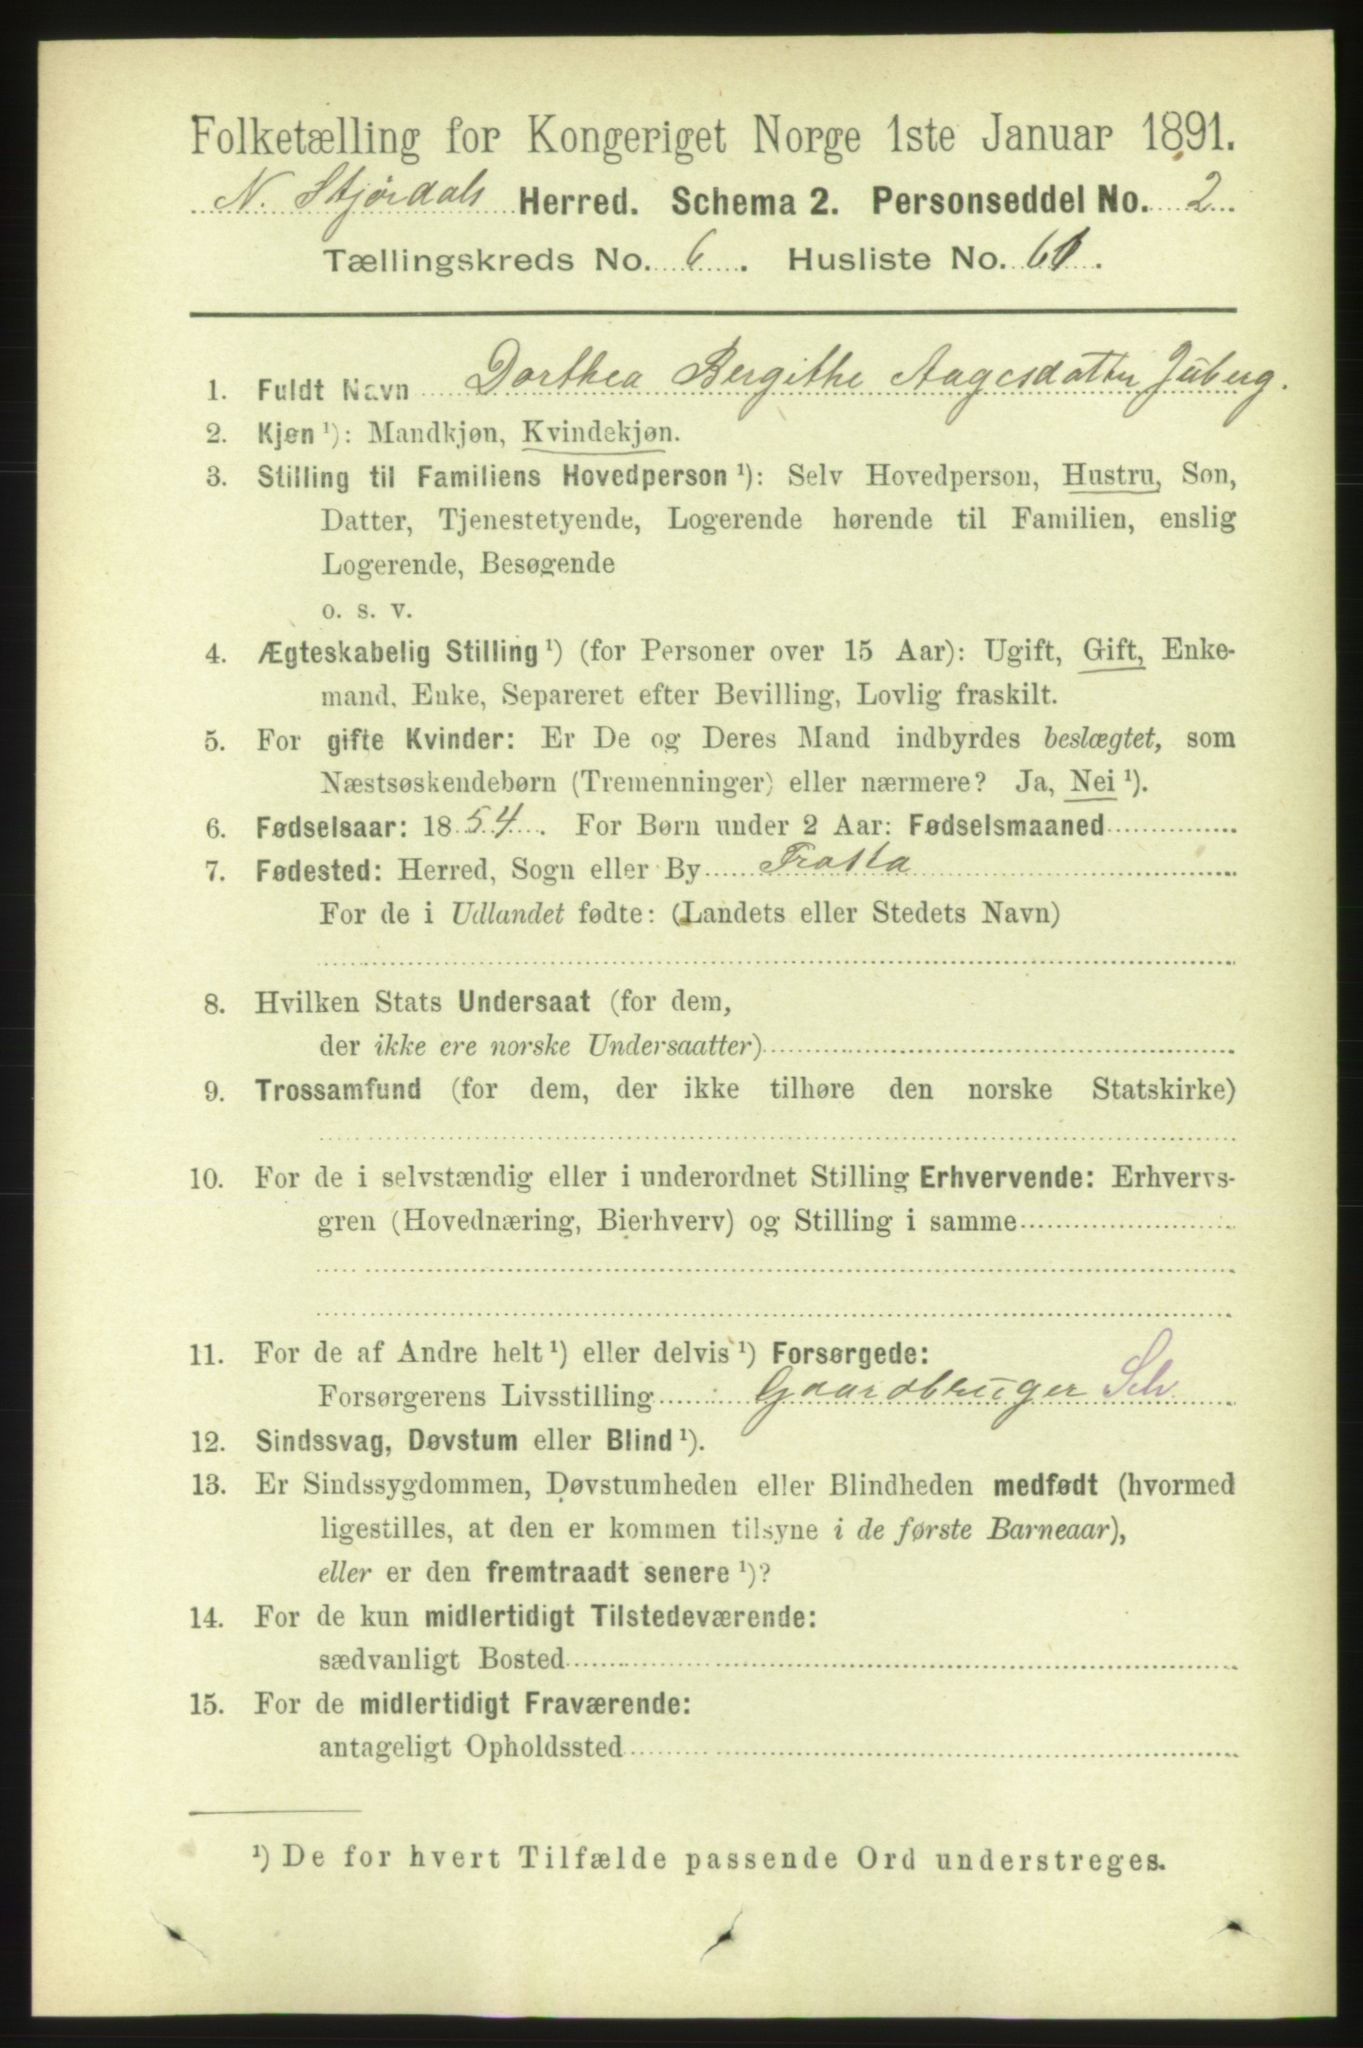 Folketælling for Kongeriget Norge 1ste Januar 1891.
N. Stjørdals Herred. Schema 2. Personseddel No. 2
Tællingskreds No. 6. Husliste No. 61.
1. Fuldt Navn Dorthea Bergithe Aagesdatter Juberg.
2. Kjøn ¹): Mandkjøn, Kvindekjøn.
3. Stilling til Familiens Hovedperson ¹): Selv Hovedperson, Hustru, Søn,
Datter, Tjenestetyende, Logerende hørende til Familien, enslig
Logerende, Besøgende
o. s. v.
4. Ægteskabelig Stilling ¹) (for Personer over 15 Aar): Ugift, Gift, Enke-
mand, Enke, Separeret efter Bevilling, Lovlig fraskilt.
5. For gifte Kvinder: Er De og Deres Mand indbyrdes beslægtet, som
Næstsøskendebørn (Tremenninger) eller nærmere? Ja, Nei ¹).
6. Fødselsaar: 1854. For Børn under 2 Aar: Fødselsmaaned
7. Fødested: Herred, Sogn eller By Frosta
For de i Udlandet fødte: (Landets eller Stedets Navn)
8. Hvilken Stats Undersaat (for dem,
der ikke ere norske Undersaatter)
9. Trossamfund (for dem, der ikke tilhøre den norske Statskirke)
10. For de i selvstændig eller i underordnet Stilling Erhvervende: Erhvervs-
gren (Hovednæring, Bierhverv) og Stilling i samme
11. For de af Andre helt ¹) eller delvis ¹) Forsørgede:
Forsørgerens Livsstilling Gaardbruger Selv
12. Sindssvag, Døvstum eller Blind ¹).
13. Er Sindssygdommen, Døvstumheden eller Blindheden medfødt (hvormed
ligestilles, at den er kommen tilsyne i de første Barneaar),
eller er den fremtraadt senere ¹)?
14. For de kun midlertidigt Tilstedeværende:
sædvanligt Bosted
15. For de midlertidigt Fraværende:
antageligt Opholdssted
¹) De for hvert Tilfælde passende Ord understreges.